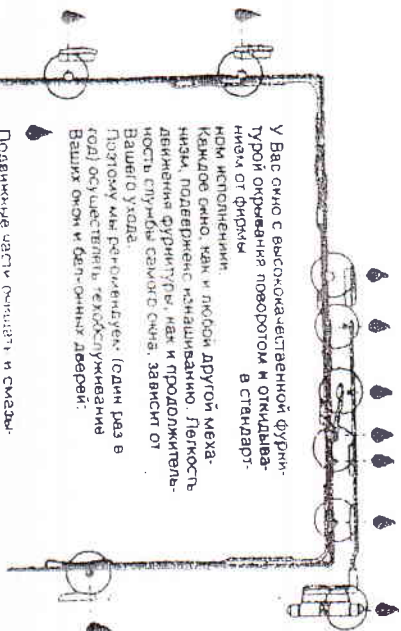 У Вас окно с высококачественной фурни-
турой окрывания поворотом и откидыва-
нием от фирмы в стандарт-
ном исполнении.
Каждое окно, как и любой другой меха-
низм, подвержено изнашиванию. Легкость
движения фурнитуры, как и продолжитель-
ность службы самого окна, зависит от
Вашего ухода.
Поэтому мы рекомендуем (один раз в
год) осуществлять техобслуживание
Ваших окон и балконных дверей:
Подвижные части очищать и смазы-